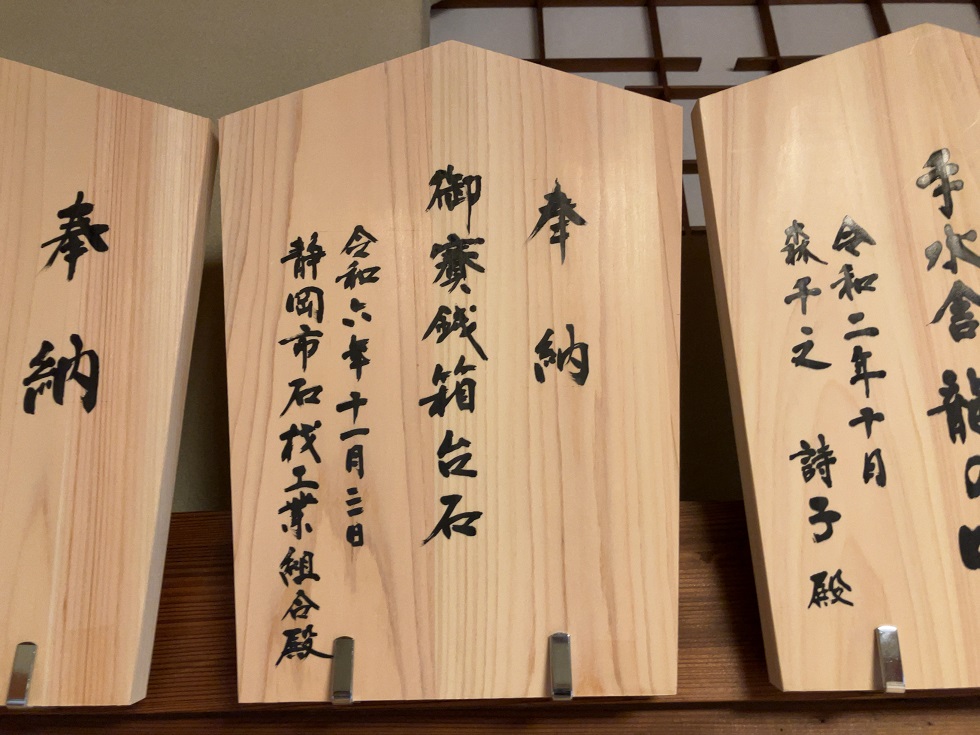 手水舎 龍の口
令和二年十月
森千之 詩子 殿
奉納
御賽銭箱台石
令和六年十一月三日
静岡市石材工業組合殿
奉納